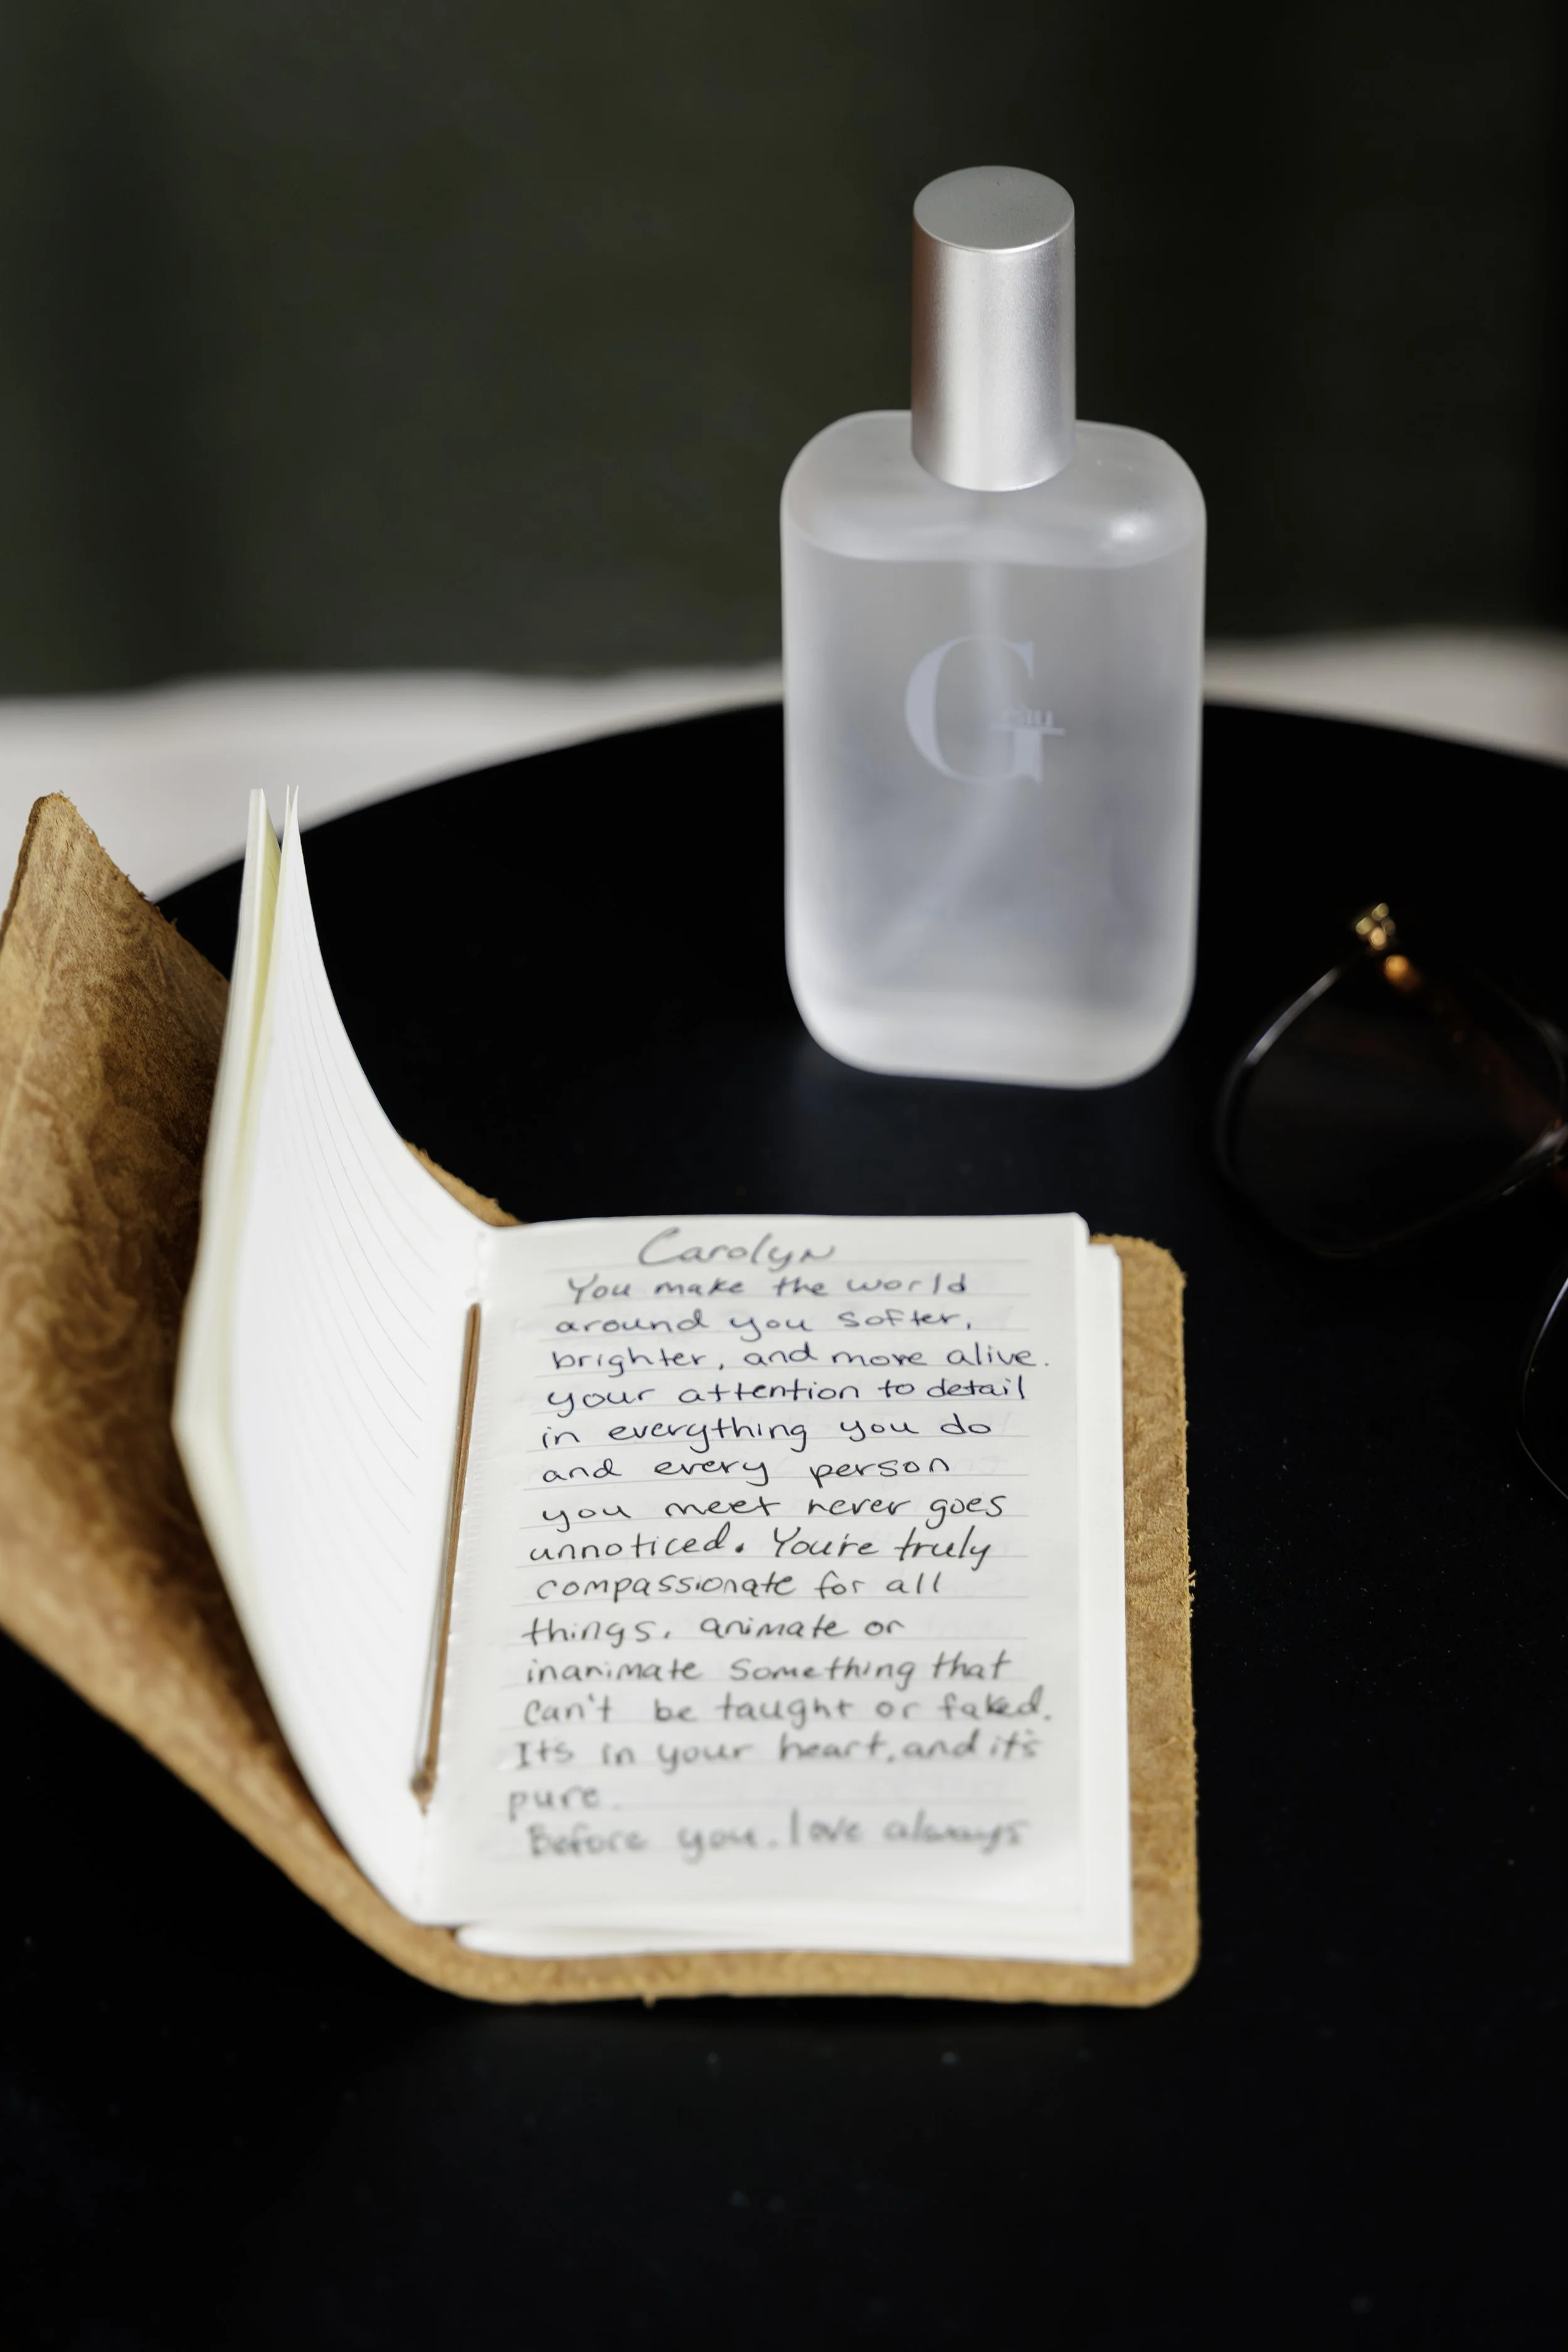 G
Carolyn
You make the world
around you softer,
brighter, and more alive.
your attention to detail
in everything you do
and every person
you meet never goes
unnoticed. You're truly
compassionate for all
things, animate or
inanimate something that
can't be taught or faked.
Its in your heart, and it's
pure.
Before you. love always